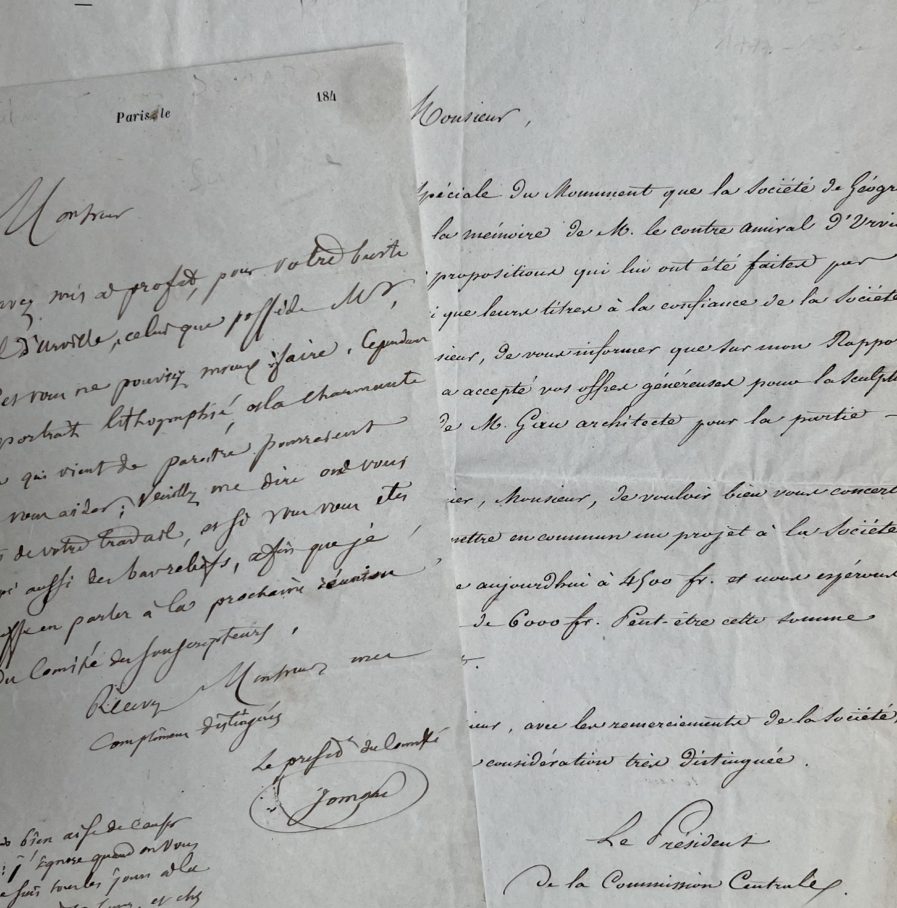 Paris, le 184
Monsieur
avez mis à profit, pour votre buste
d'Urville, celui que possède Mr,
et vous ne pouviez mieux faire. Cependant
portrait lithographié et la charmante
qui vient de paroitre pourroient
vous aider; veuillez me dire où vous
de votre travail, et si vous vous êtes
aussi des bas reliefs, afin que je
en parler à la prochaine réunion
du Comité des souscripteurs.
Recevez Monsieur mes
complimens distingués
Le présid. du Comité
Jomard
bien aise de causer
j'ignore quand on vous
tous les jours à la
et chez
Monsieur,
spéciale du Monument que la Société de Géogr
la mémoire de M. le contre amiral d'Urvi
propositions qui lui ont été faites par
que leurs titres à la confiance de la Société
sieur, de vous informer que sur mon Rappo
a accepté vos offres généreuses pour la sculpt
de M. Gau architecte pour la partie –
ier, Monsieur, de vouloir bien vous concert
mettre en commun un projet à la Société
e aujourdhui à 4500 fr. et nous espérons
de 6000 fr. Peut-être cette somme
ieur, avec les remerciements de la Société,
considération très distinguée.
Le Président
de la Commission Centrale.